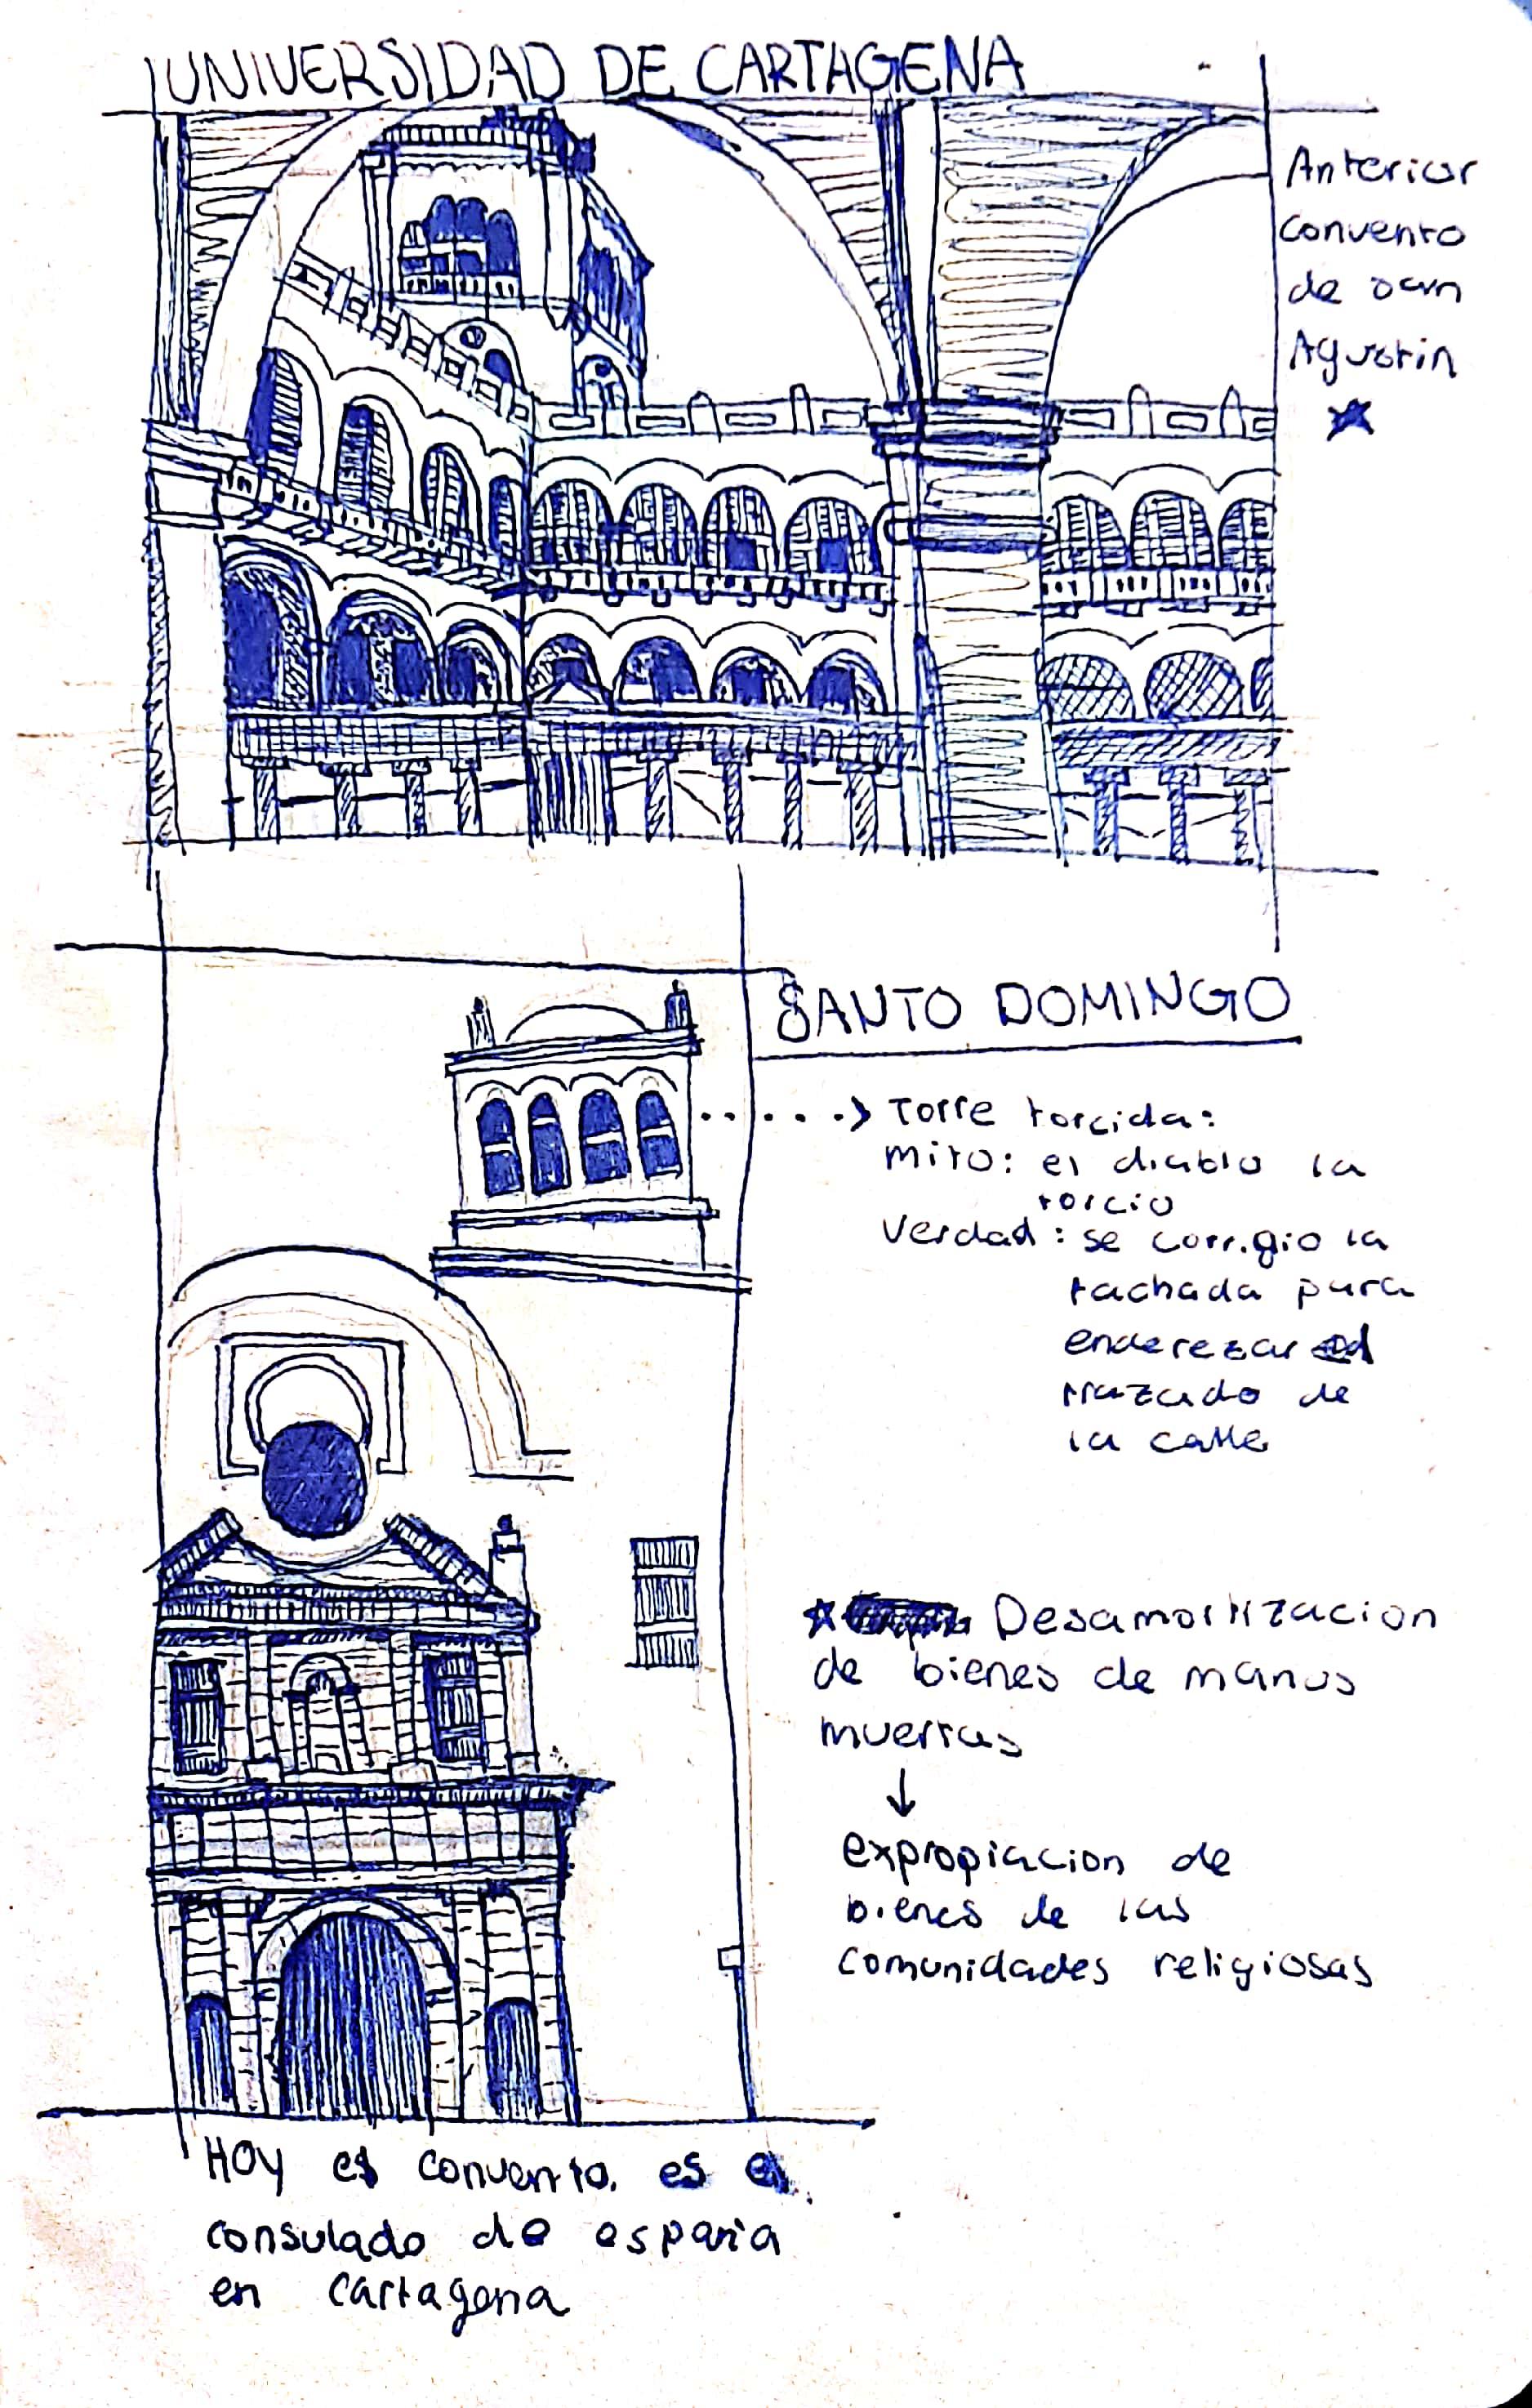 UNIVERSIDAD DE CARTAGENA
Anterior
convento
de san
Agustin
SANTO DOMINGO
Torre torcida:
mito: el diablo la
torcio
Verdad: se corrigio la
fachada para
enderezar el
trazado de
la calle
Desamortizacion
de bienes de manos
muertas
expropiacion de
bienes de las
comunidades religiosas
HOY el convento. es el
consulado de españa
en cartagena